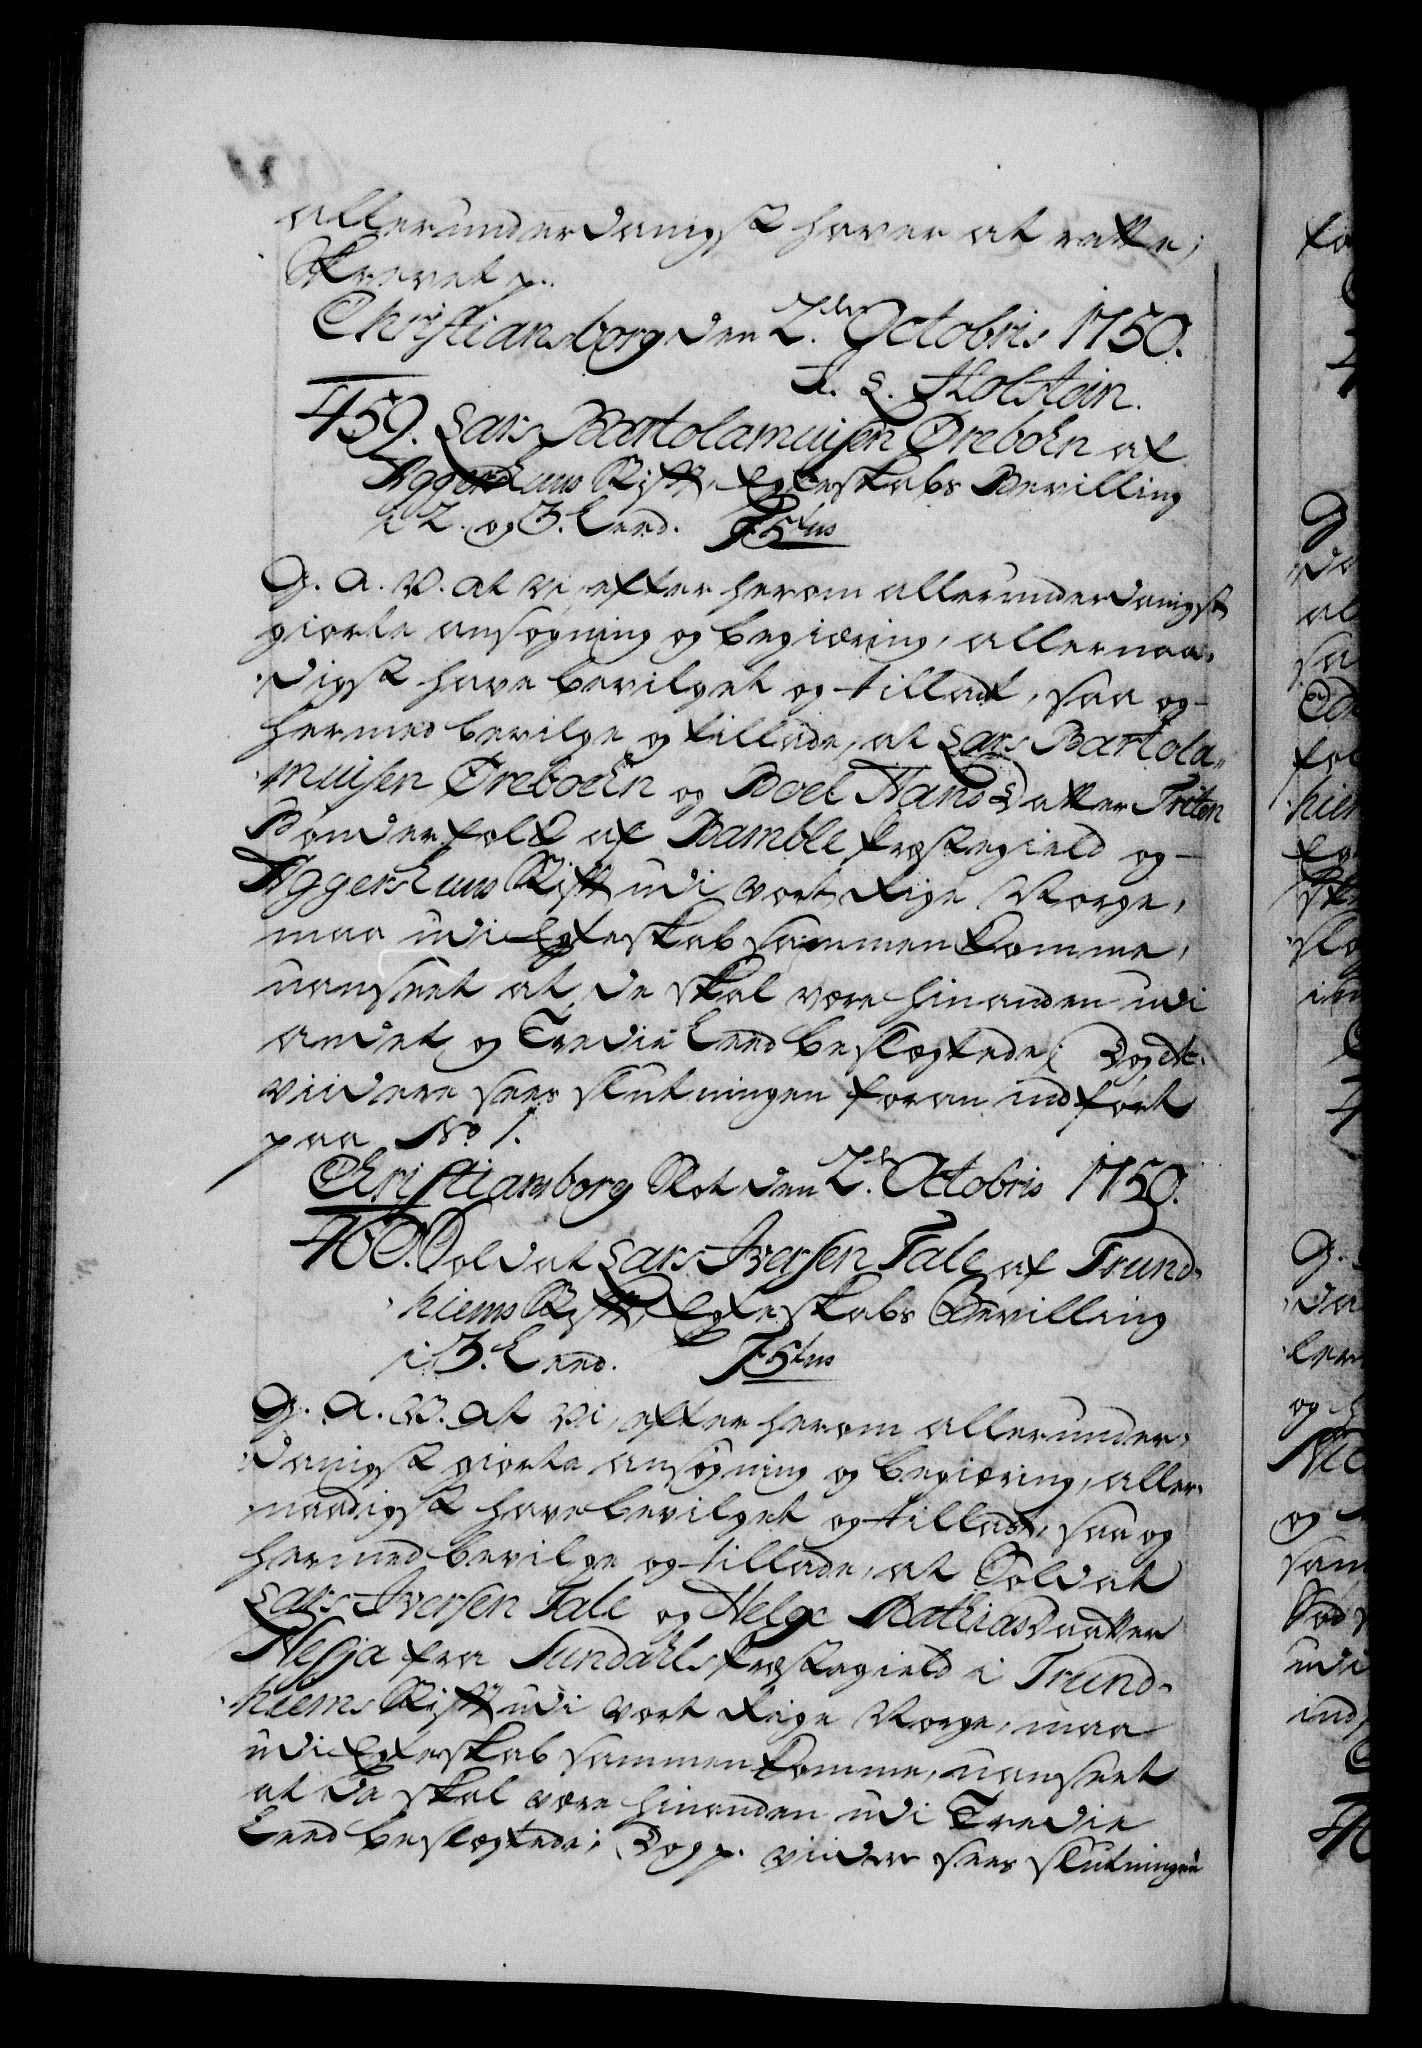 allerunderdanigst haver at rette;
Skrevet p.
Christiansborg den 2den Octobris 1750.
J. L. Holstein.
459. Lars Bartolamuisen Øreboen af
Aggershuus Stift, Egteskabs Bevilling
i 2. og 3. Leed.
G. A. V. at vi, efter herom allerunderdanigst
giorte ansøgning og begiæring, allernaa-
digst have bevilget og tilladt, saa og
hermed bevilge og tillade, at Lars Bartola-
muisen Øreboen og Boel Hans Datter Triten
Bønderfolk af Bamble Præstegield og
Aggershuus Stift udi vort Rige Norge,
maa udi Egteskab sammenkomme,
uanseet at de skal være hinanden udi
andet og Tredie Leed beslægtede; Dog etc.
viidere sees slutningen foran indført
paa No 1.
Christiansborg Slot den 2den Octobris 1750.
460. Soldat Lars Iversen Tale af Trund-
hiems Stift, Egteskabs Bevilling
i 3. Leed.
G. A. V. at vi, efter herom allerunder-
danigst giorte ansøgning og begiæring, aller-
naadigst have bevilget og tilladt, saa og
hermed bevilge og tillade, at Soldat
Lars Iversen Tale og Helge Mathiasdaatter
Nesja fra Sundahls Præstegield i Trund-
hiems Stift udi vort Rige Norge, maa
udi Egteskab sammenkomme, uanseet
at de skal være hinanden udi Tredie
Leed beslægtede; Dog p. viidere sees slutningen